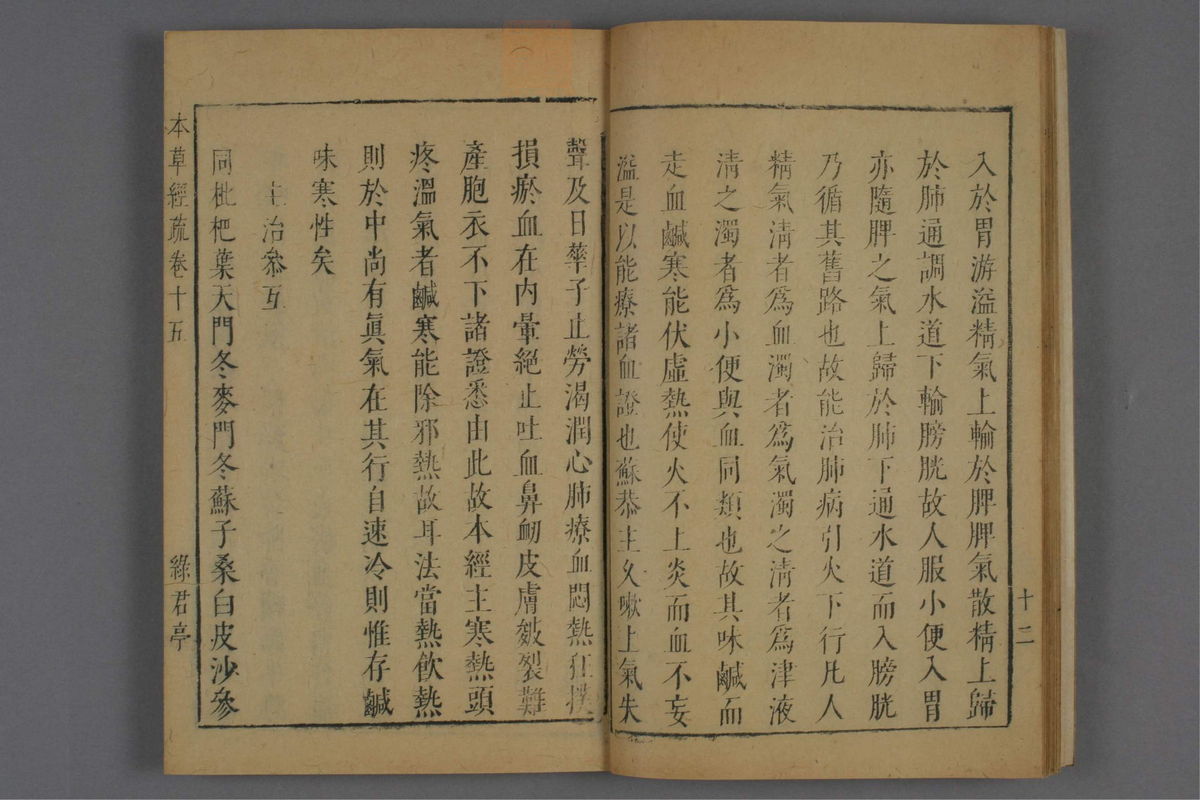 十二
入於胃游溢精氣上輸於脾脾氣散精上歸
於肺通調水道下輸膀胱故人服小便入胃
亦隨脾之氣上歸於肺下通水道而入膀胱
乃循其舊路也故能治肺病引火下行凡人
精氣清者爲血濁者爲氣濁之清者爲津液
清之濁者爲小便與血同類也故其味鹹而
走血鹹寒能伏虛熱使火不上炎而血不妄
溢是以能療諸血證也蘇恭主久嗽上氣失
聲及日華子止勞渴潤心肺療血悶熱狂撲
損瘀血在內暈絕止吐血鼻衂皮膚皴裂難
產胞衣不下諸證悉由此故本經主寒熱頭
疼溫氣者鹹寒能除邪熱故耳法當熱飲熱
則於中尚有眞氣在其行自速冷則惟存鹹
味寒性矣
主治叅互
同枇杷葉天門冬麥門冬蘇子桑白皮沙參
本草經疏卷十五
綠君亭